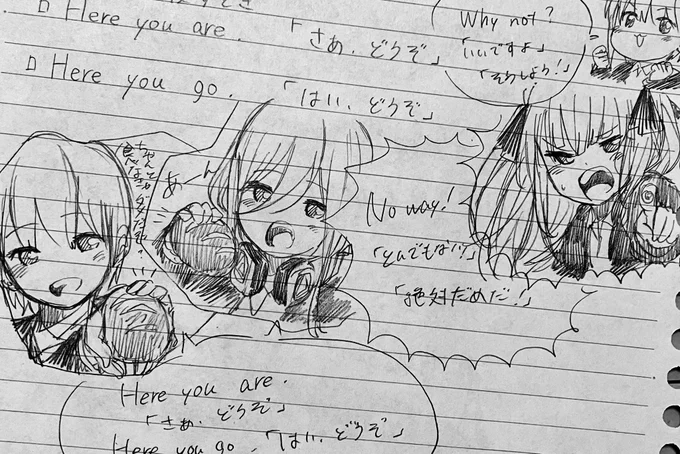 □ Here you are.
「さあ、どうぞ」
□ Here you go.
「はい、どうぞ」
Why not?
「いいですよ」
「そうしよう!」
あーん
No way!
「とんでもない!」
「絶対だめだ!」
Here you are.
「さあ、どうぞ」
Here you go.
「はい、どうぞ」